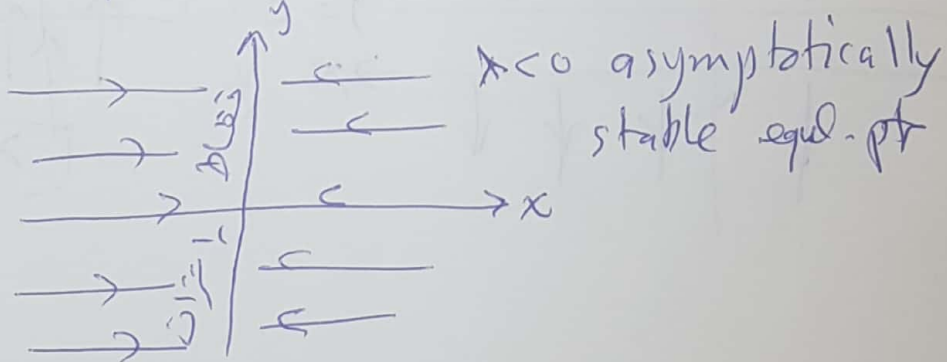 y
λ<0 asymptotically
stable equl. pt
x